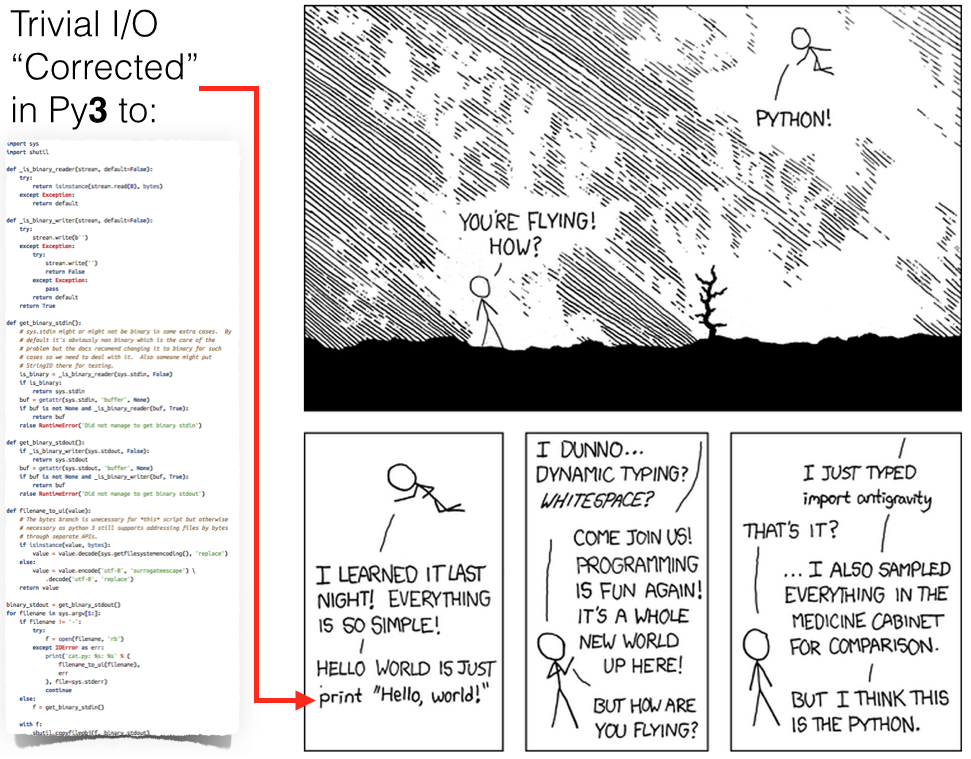 Trivial I/O
“Corrected”
in Py3 to:
import sys
import shutil
def _is_binary_reader(stream, default=False):
try:
return isinstance(stream.read(0), bytes)
except Exception:
return default
def _is_binary_writer(stream, default=False):
try:
stream.write(b'')
except Exception:
try:
stream.write('')
return False
except Exception:
pass
return default
return True
def get_binary_stdin():
# sys.stdin might or might not be binary in some extra cases. By
# default it's obviously non binary which is the core of the
# problem but the docs recomend changing it to binary for such
# cases so we need to deal with it. Also someone might put
# StringIO there for testing.
is_binary = _is_binary_reader(sys.stdin, False)
if is_binary:
return sys.stdin
buf = getattr(sys.stdin, 'buffer', None)
if buf is not None and _is_binary_reader(buf, True):
return buf
raise RuntimeError('Did not manage to get binary stdin')
def get_binary_stdout():
if _is_binary_writer(sys.stdout, False):
return sys.stdout
buf = getattr(sys.stdout, 'buffer', None)
if buf is not None and _is_binary_writer(buf, True):
return buf
raise RuntimeError('Did not manage to get binary stdout')
def filename_to_ui(value):
# The bytes branch is unecessary for *this* script but otherwise
# necessary as python 3 still supports addressing files by bytes
# through separate APIs.
if isinstance(value, bytes):
value = value.decode(sys.getfilesystemencoding(), 'replace')
else:
value = value.encode('utf-8', 'surrogateescape') \
.decode('utf-8', 'replace')
return value
binary_stdout = get_binary_stdout()
for filename in sys.argv[1:]:
if filename != '-':
try:
f = open(filename, 'rb')
except IOError as err:
print('cat.py: %s: %s' % (
filename_to_ui(filename),
err
), file=sys.stderr)
continue
else:
f = get_binary_stdin()
with f:
shutil.copyfileobj(f, binary_stdout)
PYTHON!
YOU'RE FLYING!
HOW?
I LEARNED IT LAST
NIGHT! EVERYTHING
IS SO SIMPLE!
HELLO WORLD IS JUST
print "Hello, world!"
I DUNNO...
DYNAMIC TYPING?
WHITESPACE?
COME JOIN US!
PROGRAMMING
IS FUN AGAIN!
IT'S A WHOLE
NEW WORLD
UP HERE!
BUT HOW ARE
YOU FLYING?
I JUST TYPED
import antigravity
THAT'S IT?
... I ALSO SAMPLED
EVERYTHING IN THE
MEDICINE CABINET
FOR COMPARISON.
BUT I THINK THIS
IS THE PYTHON.